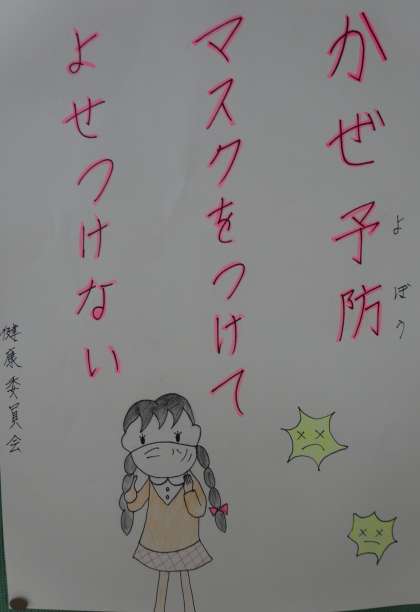 かぜ予防
よぼう
マスクをつけて
よせつけない
健康委員会